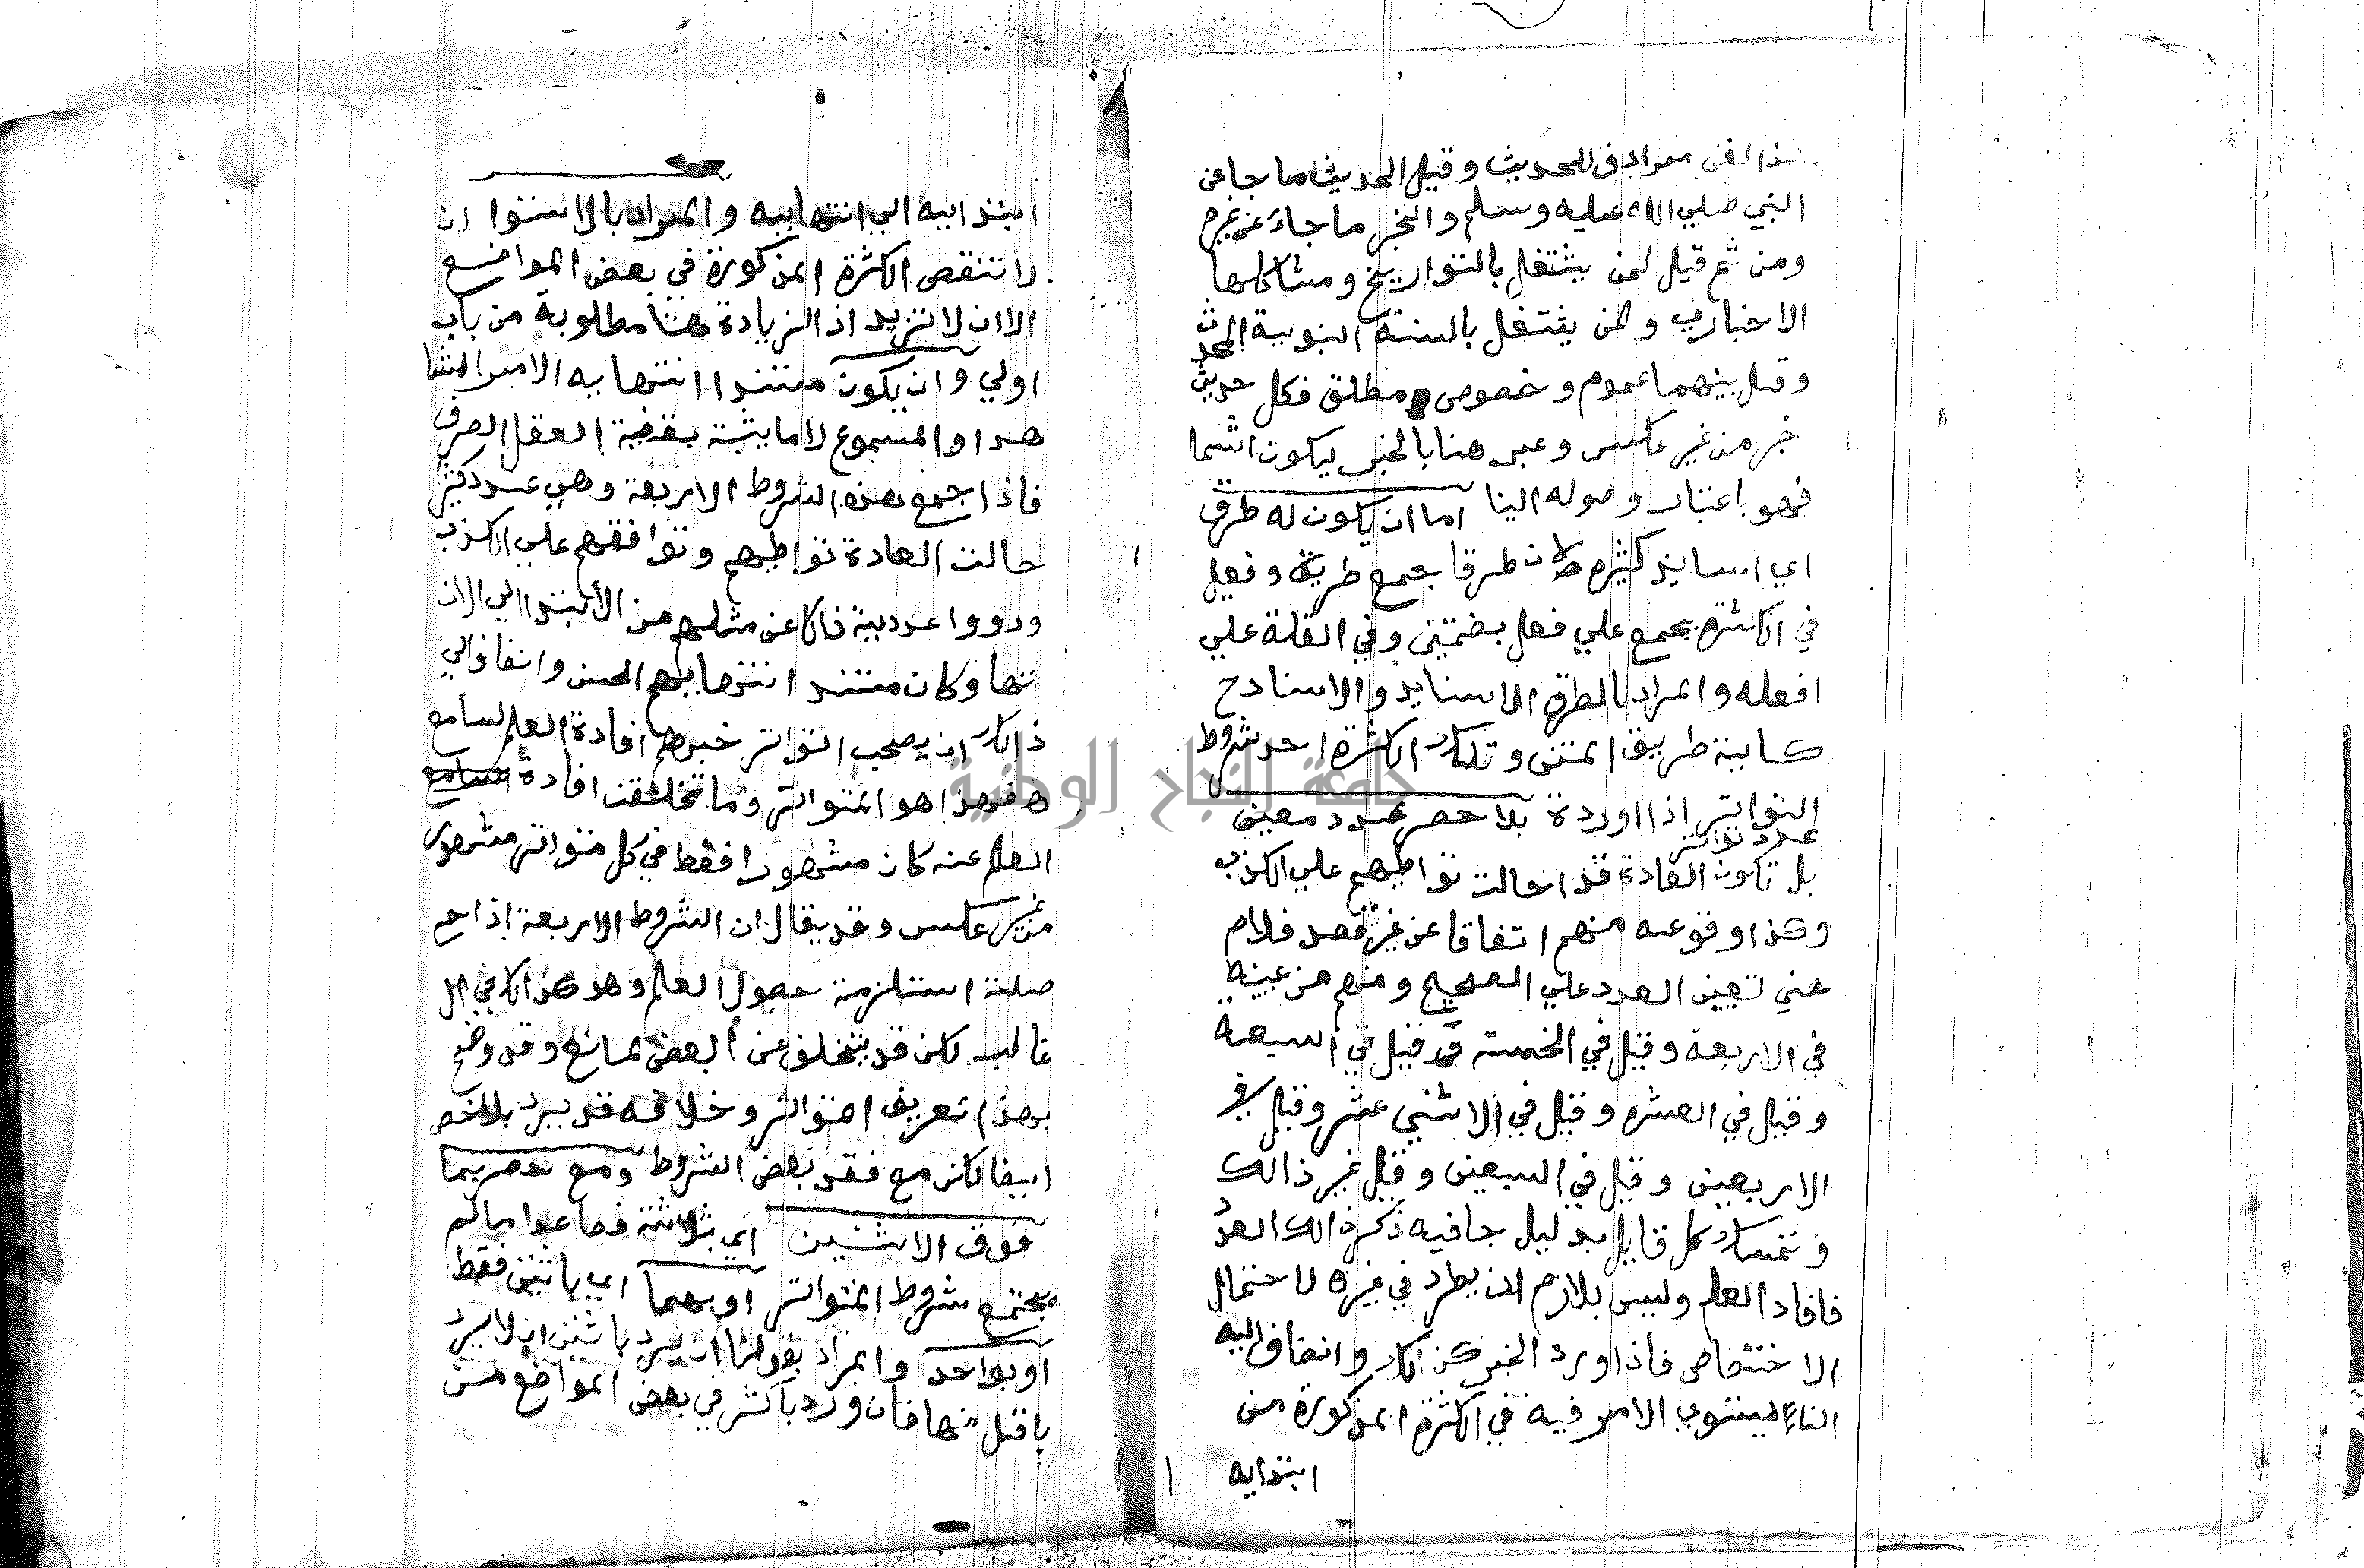 هذا الفن مرادف للحديث وقيل الحديث ما جا عن
النبي صلي الله عليه وسلم والخبر ما جاء عن غيره
ومن ثم قيل لمن يشتغل بالتواريخ ومشاكلها
الاخباري ولمن يشتغل بالسنة النبوية المحدث
وقيل بينهما عموم وخصوص مطلق فكل حديث
خبر من غير عكس وعبر هنا بالخبر ليكون اشما
فهو باعتبار وصوله الينا اما ان يكون له طرق
اي اسانيد كثيره لان طرقا جمع طريق وفعيل
في الكثره يجمع علي فعل بضمتين وفي القلة علي
افعله والمراد بالطرق الاسانيد والاسناد ح
كاية طريق المتن وتلك الكثرة احد شروط
التواتر اذا اوردة بلا حصر عدد معين
عدد تواتر
بل تكون العادة قد احالت تواطيهم علي الكذب
وكذا وقوعه منهم اتفاقا عن غير قصد فلا م
عني تعيين العدد علي الصحيح ومنهم من عينه
في الاربعة وقيل في الخمسة وقيل في السبعة
وقيل في العشره وقيل في الاثني عشر وقيل في
الاربعين وقيل في السبعين وقيل غير ذالك
وتمسك كل قايل بدليل جا فيه ذكر ذالك العدد
فافاد العلم وليس بلازم ان يطرد في غيره لاحتمال
الاختصاص فاذا ورد الخبر كذالك وانضاف اليه
الناء ليستوي الامر فيه في الكثرة المذكورة من
ابتدايه
ابتدايه الي انتهاييه والمراد بالاستوا ان
لا تنقص الكثرة المذكورة في بعض المواضع
الا ان لا تزيد اذ الزيادة هنا مطلوبة من باب
اولي وان يكون مستندا انتهايه الامر المشا
هد او المسموع لا ما يثبة بقضية العقل الصرف
فاذا جمع هذه الشروط الاربعة وهي عدد كثير
حالت العادة تواطيهم وتوافقهم علي الكذب
ورووا عددية ذالك عن مثلهم من الابتدا الي الان
تها وكان مستند انتهايهم الحسن وانضاف الي
ذالك ان يصحب التواتر خبرهم افادة العلم لسامع
ه فهذا هو المتواتر وما تخلفت افادة
العلم عنه كان مشهورا فقط في كل متواتر مشهور
من غير عكس وقد يقال ان الشروط الاربعة اذا ح
صلة استلزمة حصول العلم وهو كذالك في ال
غالب لكن قد يتخلف عن البعض لمانع وقد وضح
بهذا تعريف المتواتر وخلافه قد يرد بلا حصر
ايضا لكن مع فقد بعض الشروط ومع حصر بما
فوق الاثنين اي بثلاثة فصاعدا ما لم
يجتمع شروط المتواتر او بهما اي باثنين فقط
او بواحد والمراد بقولنا ان يرد باثنين ان لا يرد
باقل منها فان ورد باكثر في بعض المواضع من
جامعة النجاح الوطنية